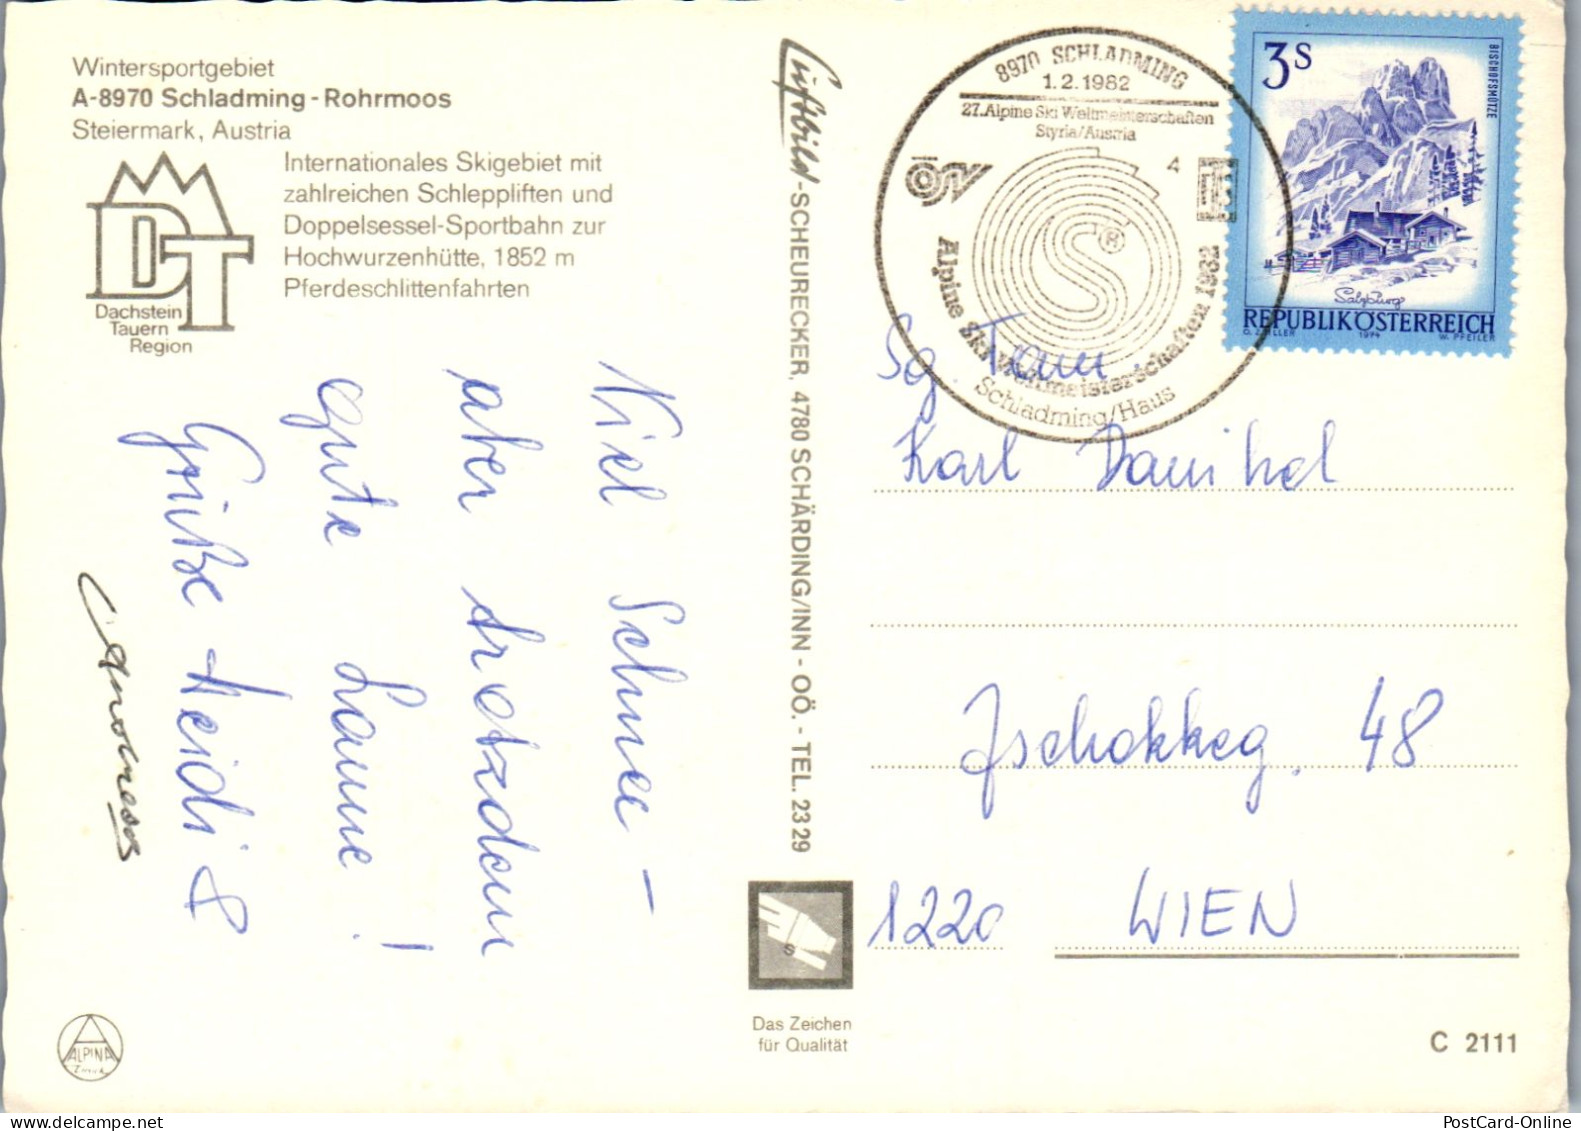 Wintersportgebiet
A-8970 Schladming - Rohrmoos
Steiermark, Austria
Internationales Skigebiet mit
zahlreichen Schleppliften und
Doppelsessel-Sportbahn zur
Hochwurzenhütte, 1852 m
Pferdeschlittenfahrten
DT
Dachstein
Tauern
Region
Viel Schnee -
aber trotzdem
gute Laune!
Grüße Heidi &
ALPINA
Luftbild-SCHEURECKER, 4780 SCHÄRDING/INN - OÖ. - TEL. 23 29
S
Das Zeichen
für Qualität
8970 SCHLADMING
1.2.1982
27. Alpine Ski Weltmeisterschaften
Styria/Austria
ÖSV
4
S ®
Alpine Ski Weltmeisterschaften 1982
Schladming/Haus
3 S
BISCHOFSMÜTZE
Salzburg
REPUBLIK ÖSTERREICH
1974
W. PFEILER
Karl
48
1220 WIEN
C 2111
PostCard-Online